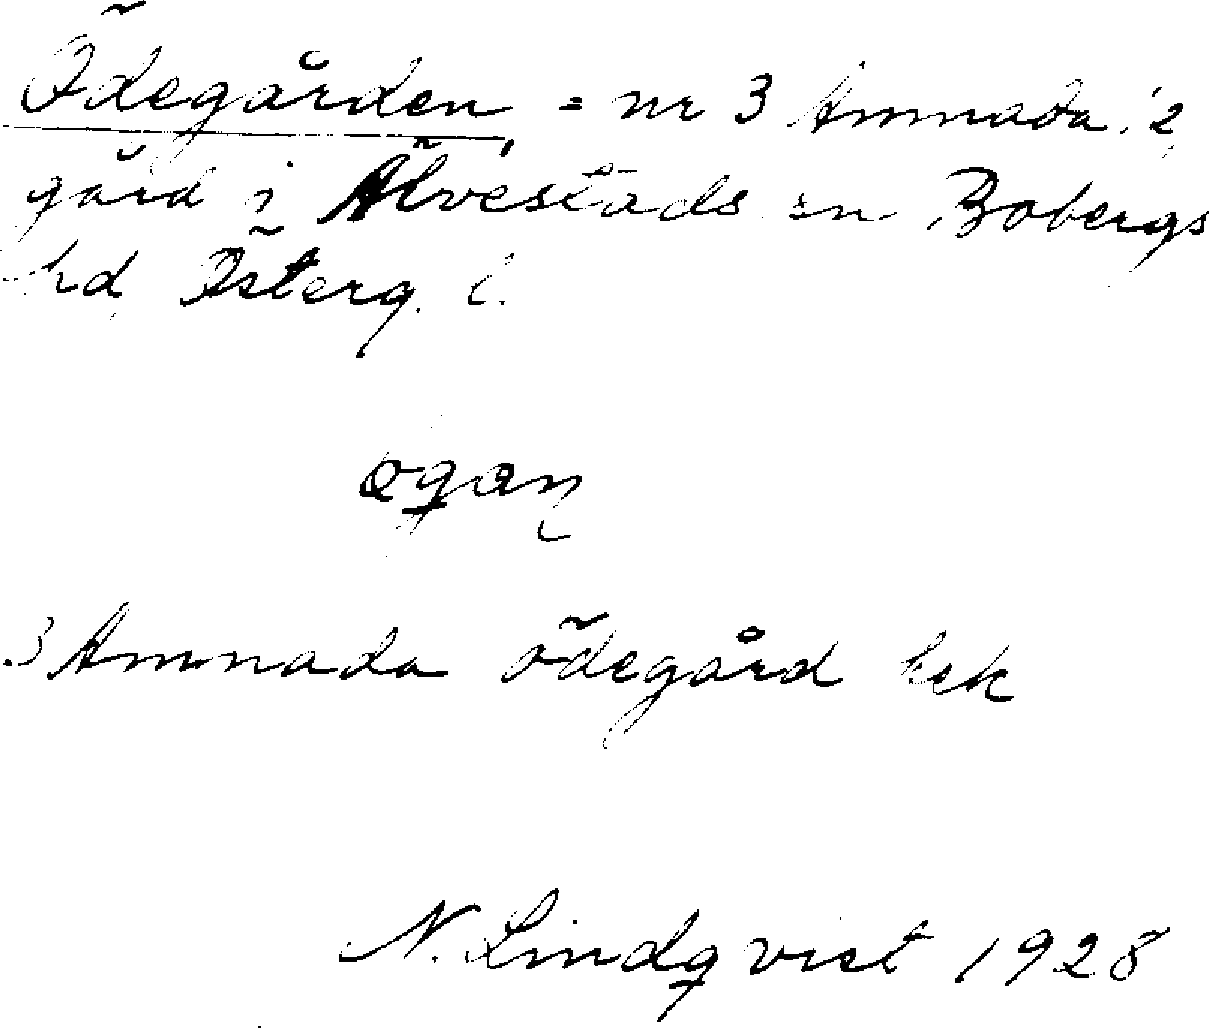 Ödegården, = nr 3 Amnada, 2
gård i Älvestads sn Bobergs
hd, Österg. l.
3 Amnada ödegård kek
N. Lindqvist 1928